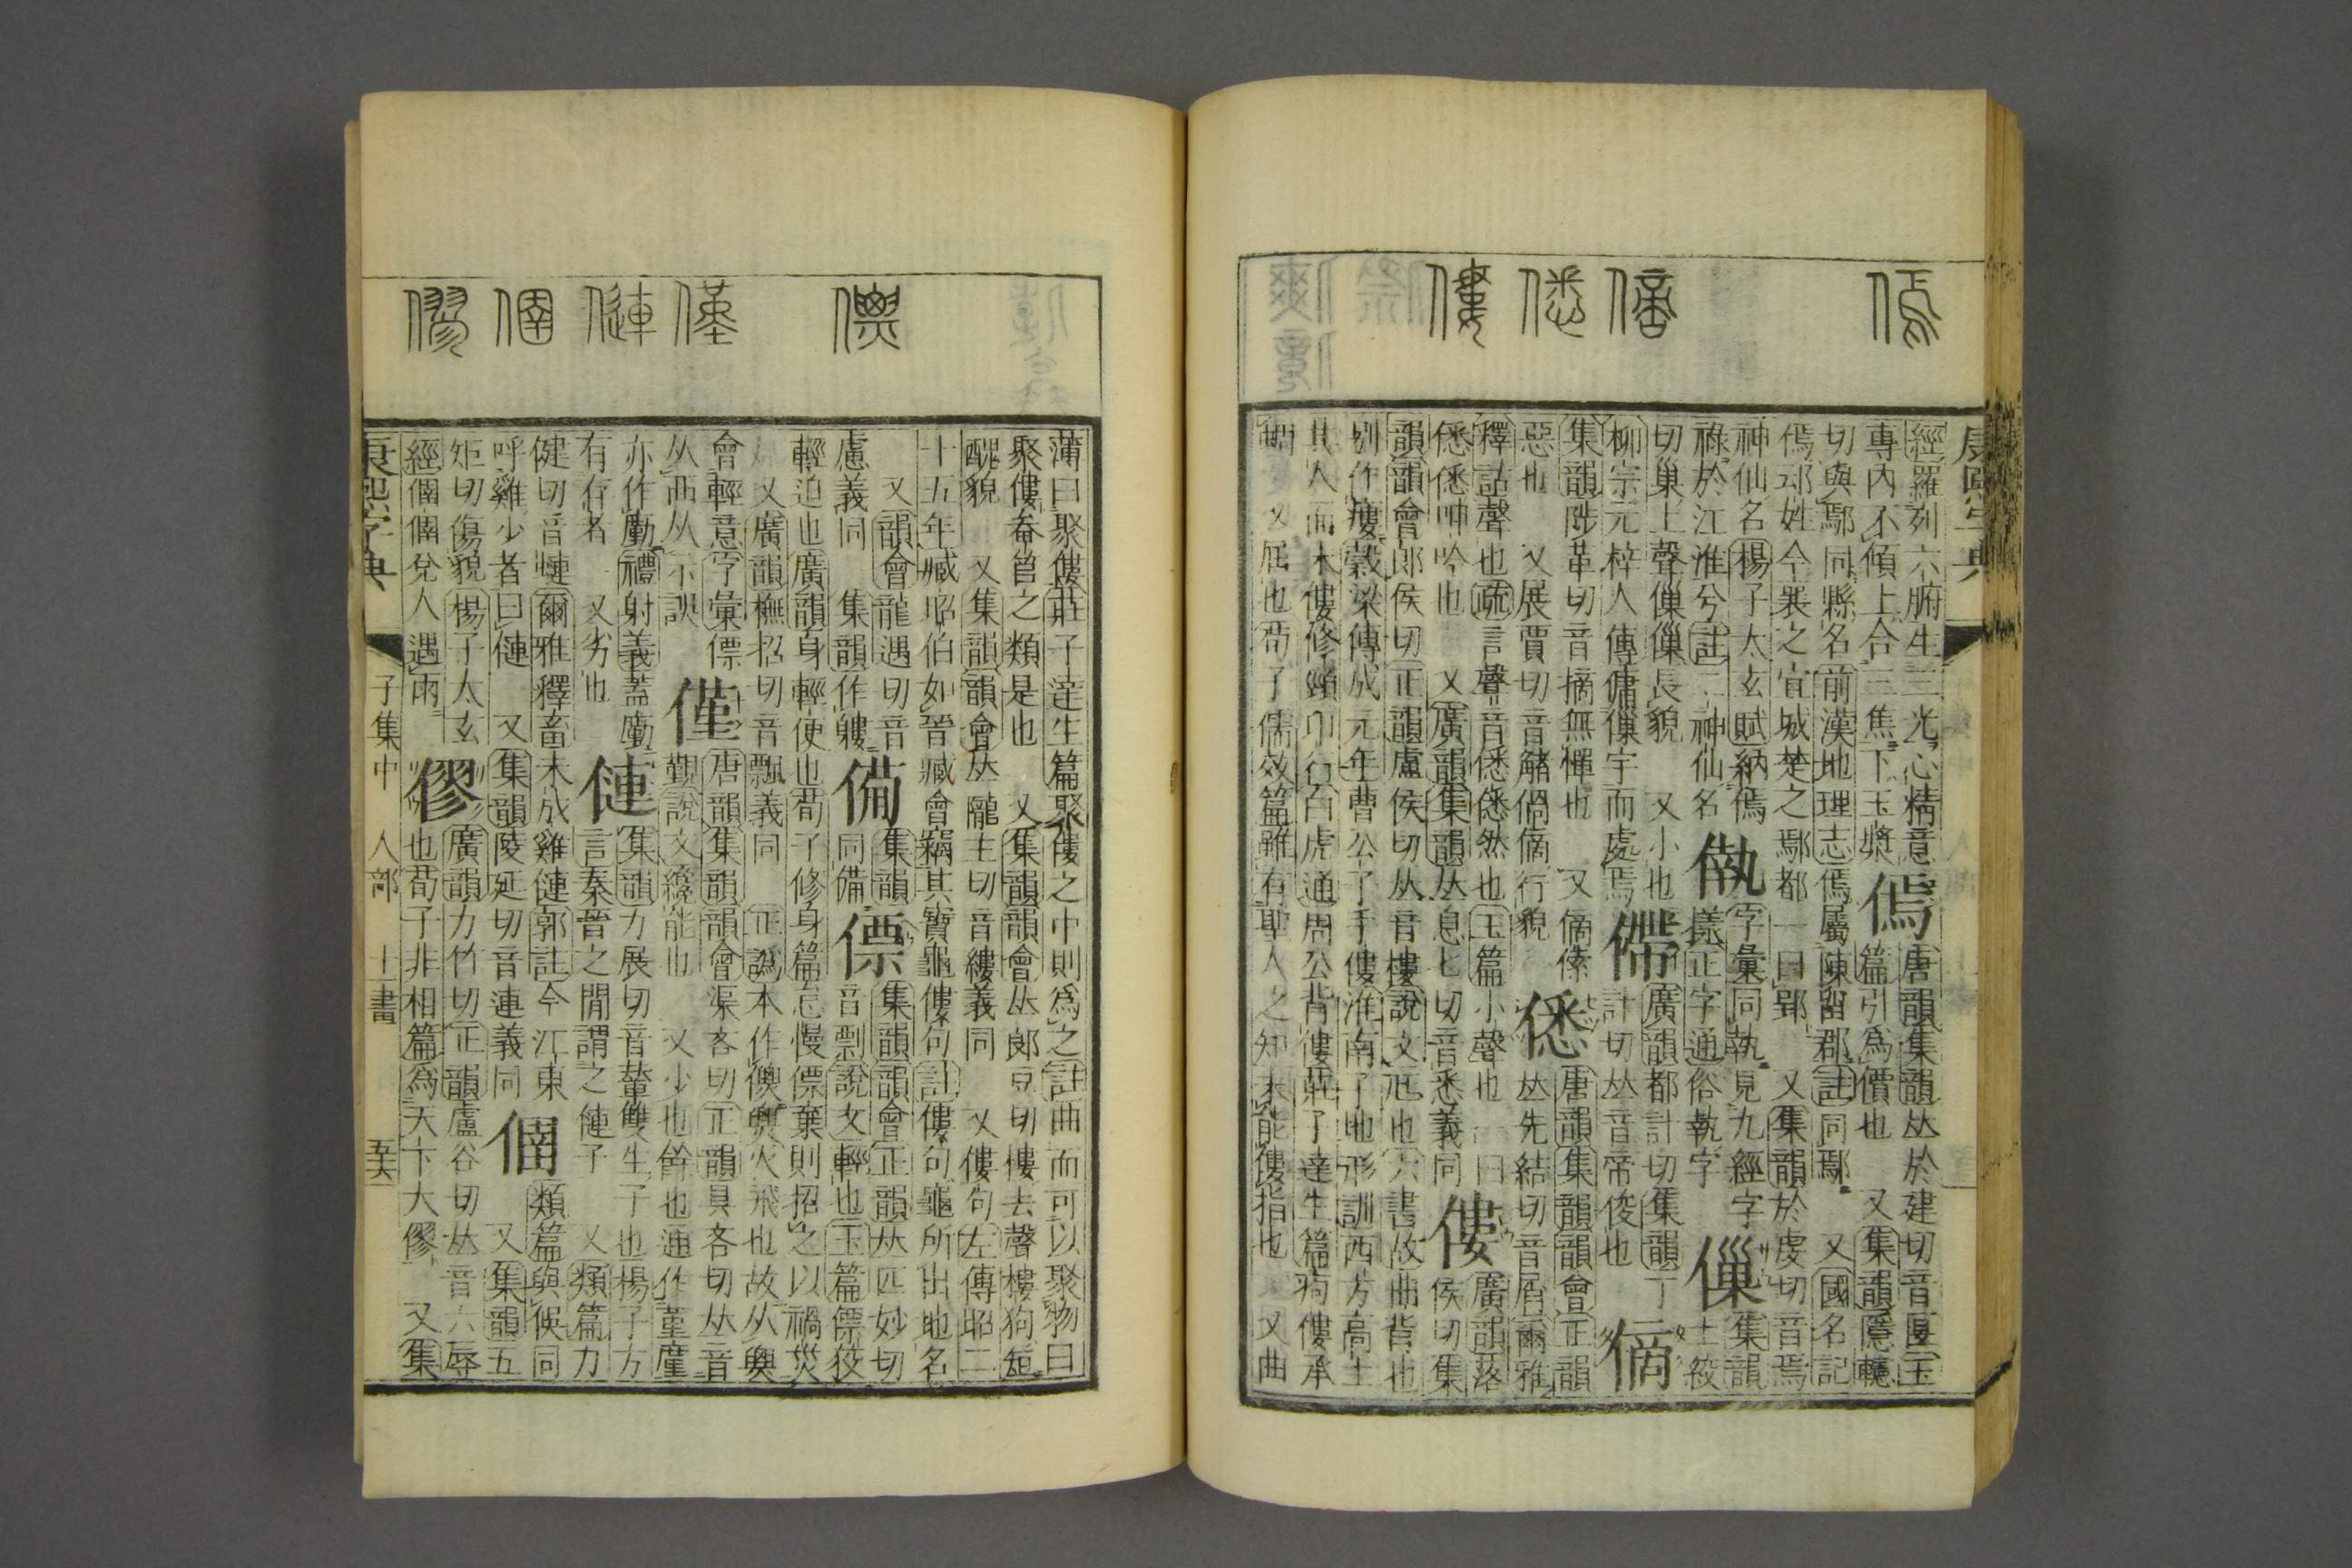 康熙字典
經羅列六腑生三光心精意
專內不傾上合三焦下玉漿
傿
唐韻集韻𠀤於建切音匽玉
篇引爲價也 又集韻隱𨎠
切與鄢同縣名前漢地理志傿屬陳留郡註同鄢 又國名記
傿邳姓今襄之宜城楚之鄢都一曰郢 又集韻於虔切音焉
神仙名楊子太玄賦納傿
祿於江淮兮註二神仙名
㑺
字彙同執見九經字
樣正字通俗執字
僺
集韻
士絞
切巢上聲僺僺長貌 又小也
柳宗元梓人傳傭僺宇而處焉
僀
廣韻都計切集韻丁
計切𠀤音帝俊也
㒀
唐韻集韻韻會正韻
集韻陟革切音摘無憚也 又㒀傃
惡也 又展賈切音觰㑩㒀行貌
僁
𠀤先結切音屑爾雅
釋詁聲也疏言聲音僁僁然也玉篇小聲也 一曰
僁僁呻吟也 又廣韻集韻𠀤息七切音悉義同
僂
廣韻落
侯切集
韻韻會郎侯切正韻盧侯切𠀤音樓說文尫也六書故曲背也
別作瘻穀梁傳成元年曹公子手僂淮南子地形訓西方高土
其人面末僂修頸卬行白虎通周公背僂莊子達生篇痀僂承
蜩 又屈也荀子儒效篇雖有聖人之知未能僂指也 又曲
薄曰聚僂莊子達生篇聚僂之中則爲之註曲而可以聚物曰
聚僂春筥之類是也 又集韻韻會𠀤郞豆切慺去聲樓狗短
醜貌 又集韻韻會𠀤隴主切音縷義同 又僂句左傳昭二
十五年臧昭伯如晉臧會竊其寶龜僂句註僂句龜所出地名
又韻會龍遇切音
慮義同 集韻作軁
僃
集韻
同備
僄
集韻韻會正韻𠀤匹妙切
音剽說文輕也玉篇僄狡
輕迫也廣韻身輕便也荀子修身篇怠慢僄棄則招之以禍災
又廣韻撫招切音飄義同 正譌本作㒟㷠火飛也故从㷠
會輕意字彙僄
从西从示誤
僅
唐韻集韻韻會渠吝切正韻具吝切𠀤音
覲說文纔能也 又少也餘也通作菫廑
亦作勵禮射義蓋勵
有存者 又劣也
僆
集韻力展切音輦雙生子也楊子方
言秦晉之閒謂之僆子 又類篇力
健切音㜕爾雅釋畜未成雞僆郭註今江東
呼雞少者曰僆 又集韻陵延切音連義同
㒁
類篇與俁同
又集韻五
矩切傷貌楊子太玄
經㒁㒁兌人遇雨
僇
廣韻力竹切正韻盧谷切𠀤音六辱
也荀子非相篇爲天下大僇 又集
康熙字典 子集中 人部 十一畫 五六